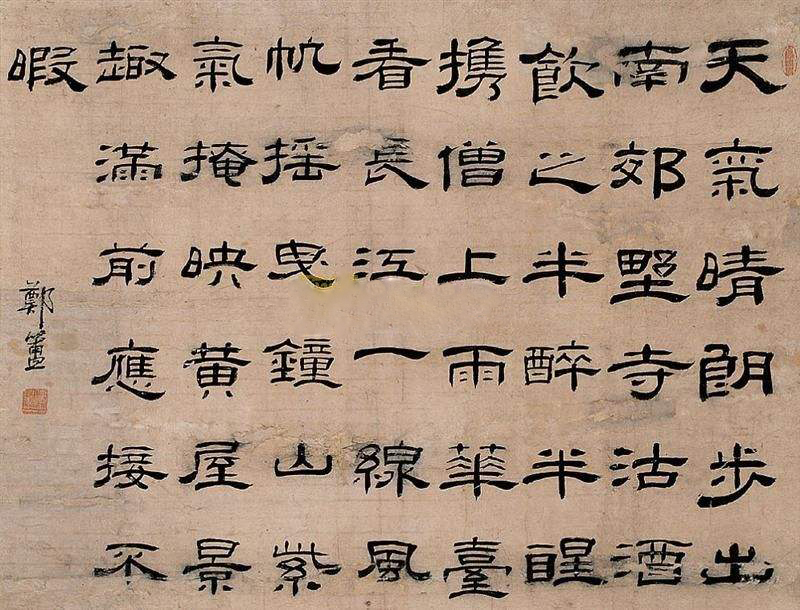 天氣晴朗步出
南郊野寺沽酒
飲之半醉半醒
携僧上雨華臺
看長江一線風
帆搖曳鐘山紫
氣掩映黃屋景
趣滿前應接不
暇
鄭簠